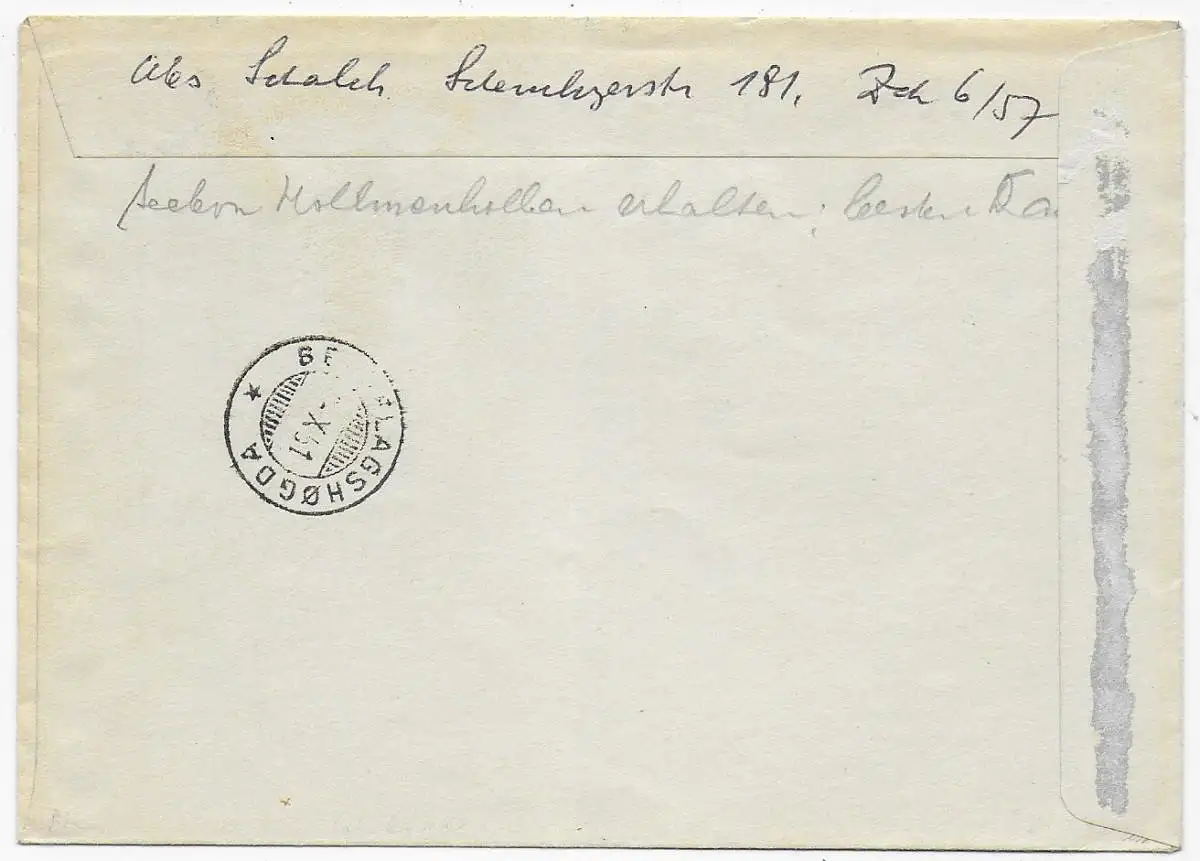 Abs Schalch Scheuchzerstr 181, Zch 6/57
Hollmenkollen erhalten; besten Dan
BE LAGSHØGDA
X 51